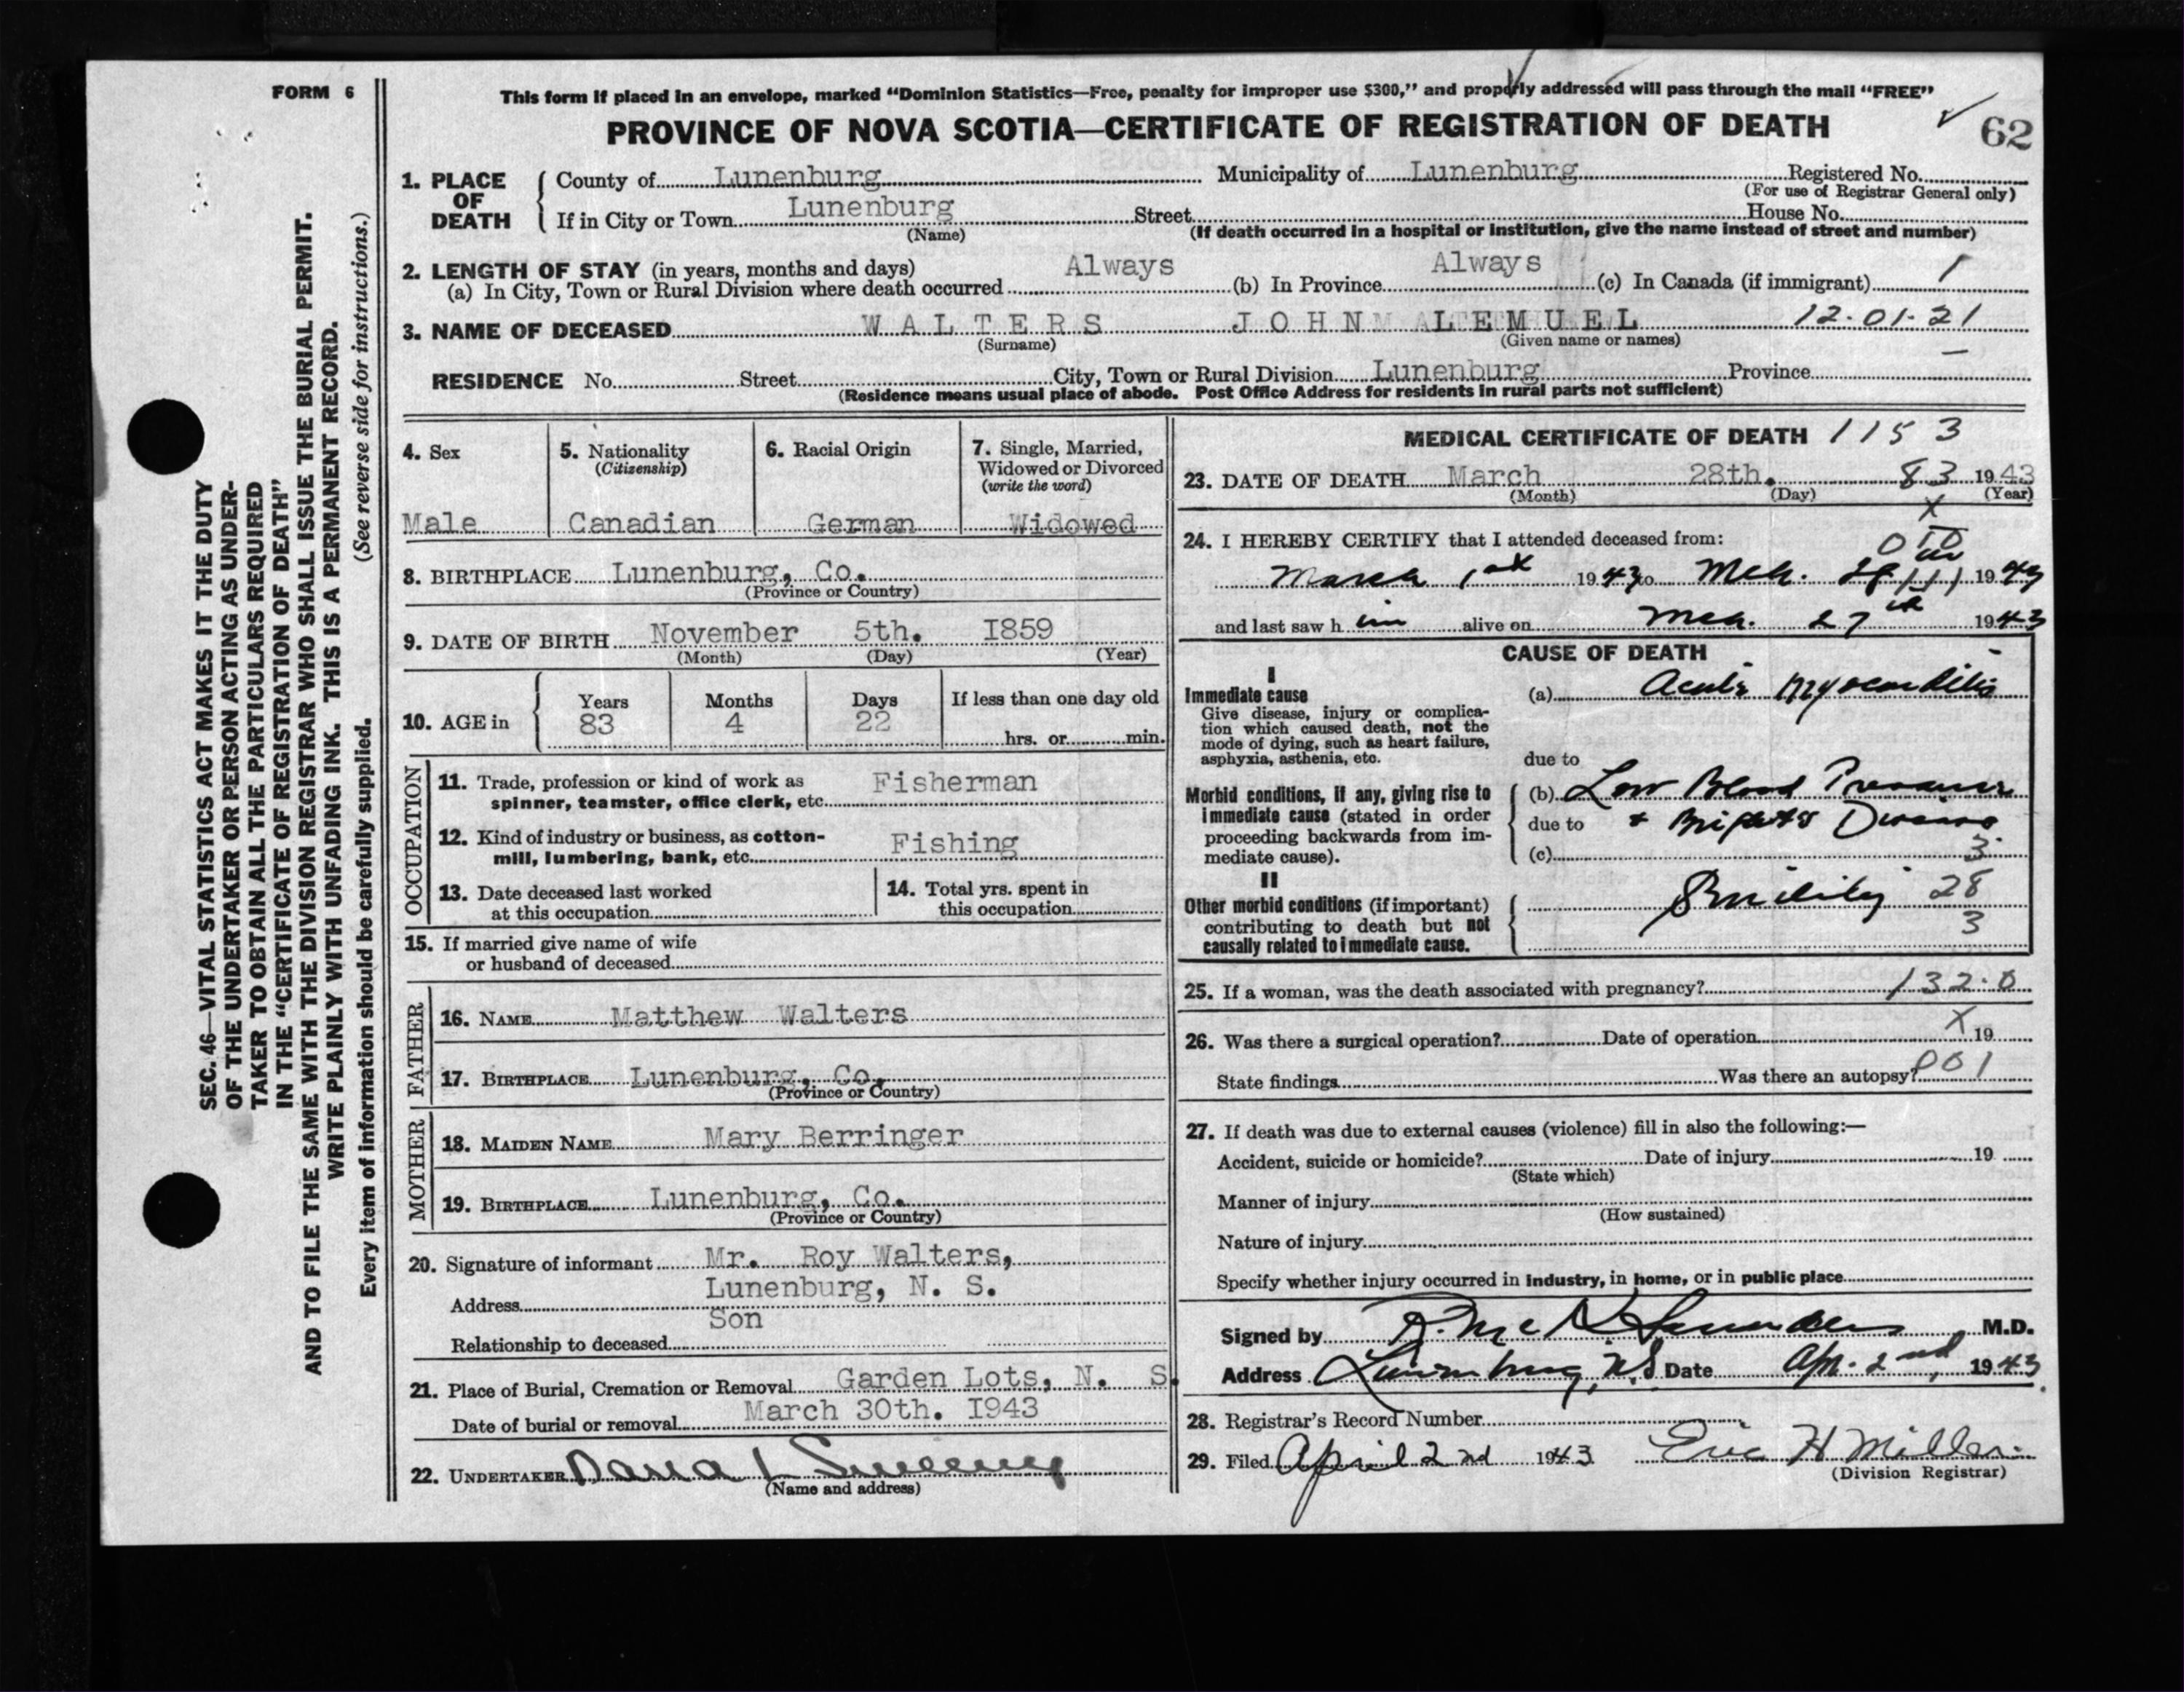 FORM 6
SEC. 46—VITAL STATISTICS ACT MAKES IT THE DUTY
OF THE UNDERTAKER OR PERSON ACTING AS UNDER-
TAKER TO OBTAIN ALL THE PARTICULARS REQUIRED
IN THE "CERTIFICATE OF REGISTRATION OF DEATH"
AND TO FILE THE SAME WITH THE DIVISION REGISTRAR WHO SHALL ISSUE THE BURIAL PERMIT.
WRITE PLAINLY WITH UNFADING INK. THIS IS A PERMANENT RECORD.
Every item of information should be carefully supplied. (See reverse side for instructions.)
This form if placed in an envelope, marked "Dominion Statistics—Free, penalty for improper use $300," and properly addressed will pass through the mail "FREE"
PROVINCE OF NOVA SCOTIA—CERTIFICATE OF REGISTRATION OF DEATH
62
1. PLACE OF DEATH
County of Lunenburg Municipality of Lunenburg Registered No.
(For use of Registrar General only)
If in City or Town Lunenburg Street House No.
(Name) (If death occurred in a hospital or institution, give the name instead of street and number)
2. LENGTH OF STAY (in years, months and days)
(a) In City, Town or Rural Division where death occurred Always (b) In Province Always (c) In Canada (if immigrant) 1
3. NAME OF DECEASED WALTERS JOHN LEMUEL 12.01.21
(Surname) (Given name or names)
RESIDENCE No. Street City, Town or Rural Division Lunenburg Province
(Residence means usual place of abode. Post Office Address for residents in rural parts not sufficient)
4. Sex
Male
5. Nationality
(Citizenship)
Canadian
6. Racial Origin
German
7. Single, Married,
Widowed or Divorced
(write the word)
Widowed
8. BIRTHPLACE Lunenburg, Co.
(Province or Country)
9. DATE OF BIRTH November 5th. I859
(Month) (Day) (Year)
10. AGE in
Years Months Days If less than one day old
83 4 22
hrs. or min.
OCCUPATION
11. Trade, profession or kind of work as
spinner, teamster, office clerk, etc. Fisherman
12. Kind of industry or business, as cotton-
mill, lumbering, bank, etc. Fishing
13. Date deceased last worked
at this occupation
14. Total yrs. spent in
this occupation
15. If married give name of wife
or husband of deceased
FATHER
16. NAME Matthew Walters
17. BIRTHPLACE Lunenburg, Co.
(Province or Country)
MOTHER
18. MAIDEN NAME Mary Berringer
19. BIRTHPLACE Lunenburg, Co.
(Province or Country)
20. Signature of informant Mr. Roy Walters,
Address Lunenburg, N. S.
Relationship to deceased Son
21. Place of Burial, Cremation or Removal Garden Lots, N. S.
Date of burial or removal March 30th. I943
22. UNDERTAKER Dana L Sweeny
(Name and address)
MEDICAL CERTIFICATE OF DEATH 1153
23. DATE OF DEATH March 28th. 83 1943
(Month) (Day) (Year)
X
24. I HEREBY CERTIFY that I attended deceased from:
March 1st 1943 to Mch. 28 1943
and last saw h im alive on Mch. 27th 1943
CAUSE OF DEATH
I
Immediate cause
Give disease, injury or complica-
tion which caused death, not the
mode of dying, such as heart failure,
asphyxia, asthenia, etc.
(a) Acute Myocarditis
due to
Morbid conditions, if any, giving rise to
immediate cause (stated in order
proceeding backwards from im-
mediate cause).
(b) Low Blood Pressure
due to + Brights Disease
(c) 3
II
Other morbid conditions (if important)
contributing to death but not
causally related to immediate cause.
Senility 28
3
25. If a woman, was the death associated with pregnancy? 132.0
26. Was there a surgical operation? Date of operation X 19
State findings Was there an autopsy? 001
27. If death was due to external causes (violence) fill in also the following:—
Accident, suicide or homicide? Date of injury 19
(State which)
Manner of injury
(How sustained)
Nature of injury
Specify whether injury occurred in industry, in home, or in public place
Signed by R. Mc N Saunders M.D.
Address Lunenburg, N.S. Date Apr. 2nd, 1943
28. Registrar's Record Number
29. Filed April 2nd 1943 Eric H Miller
(Division Registrar)